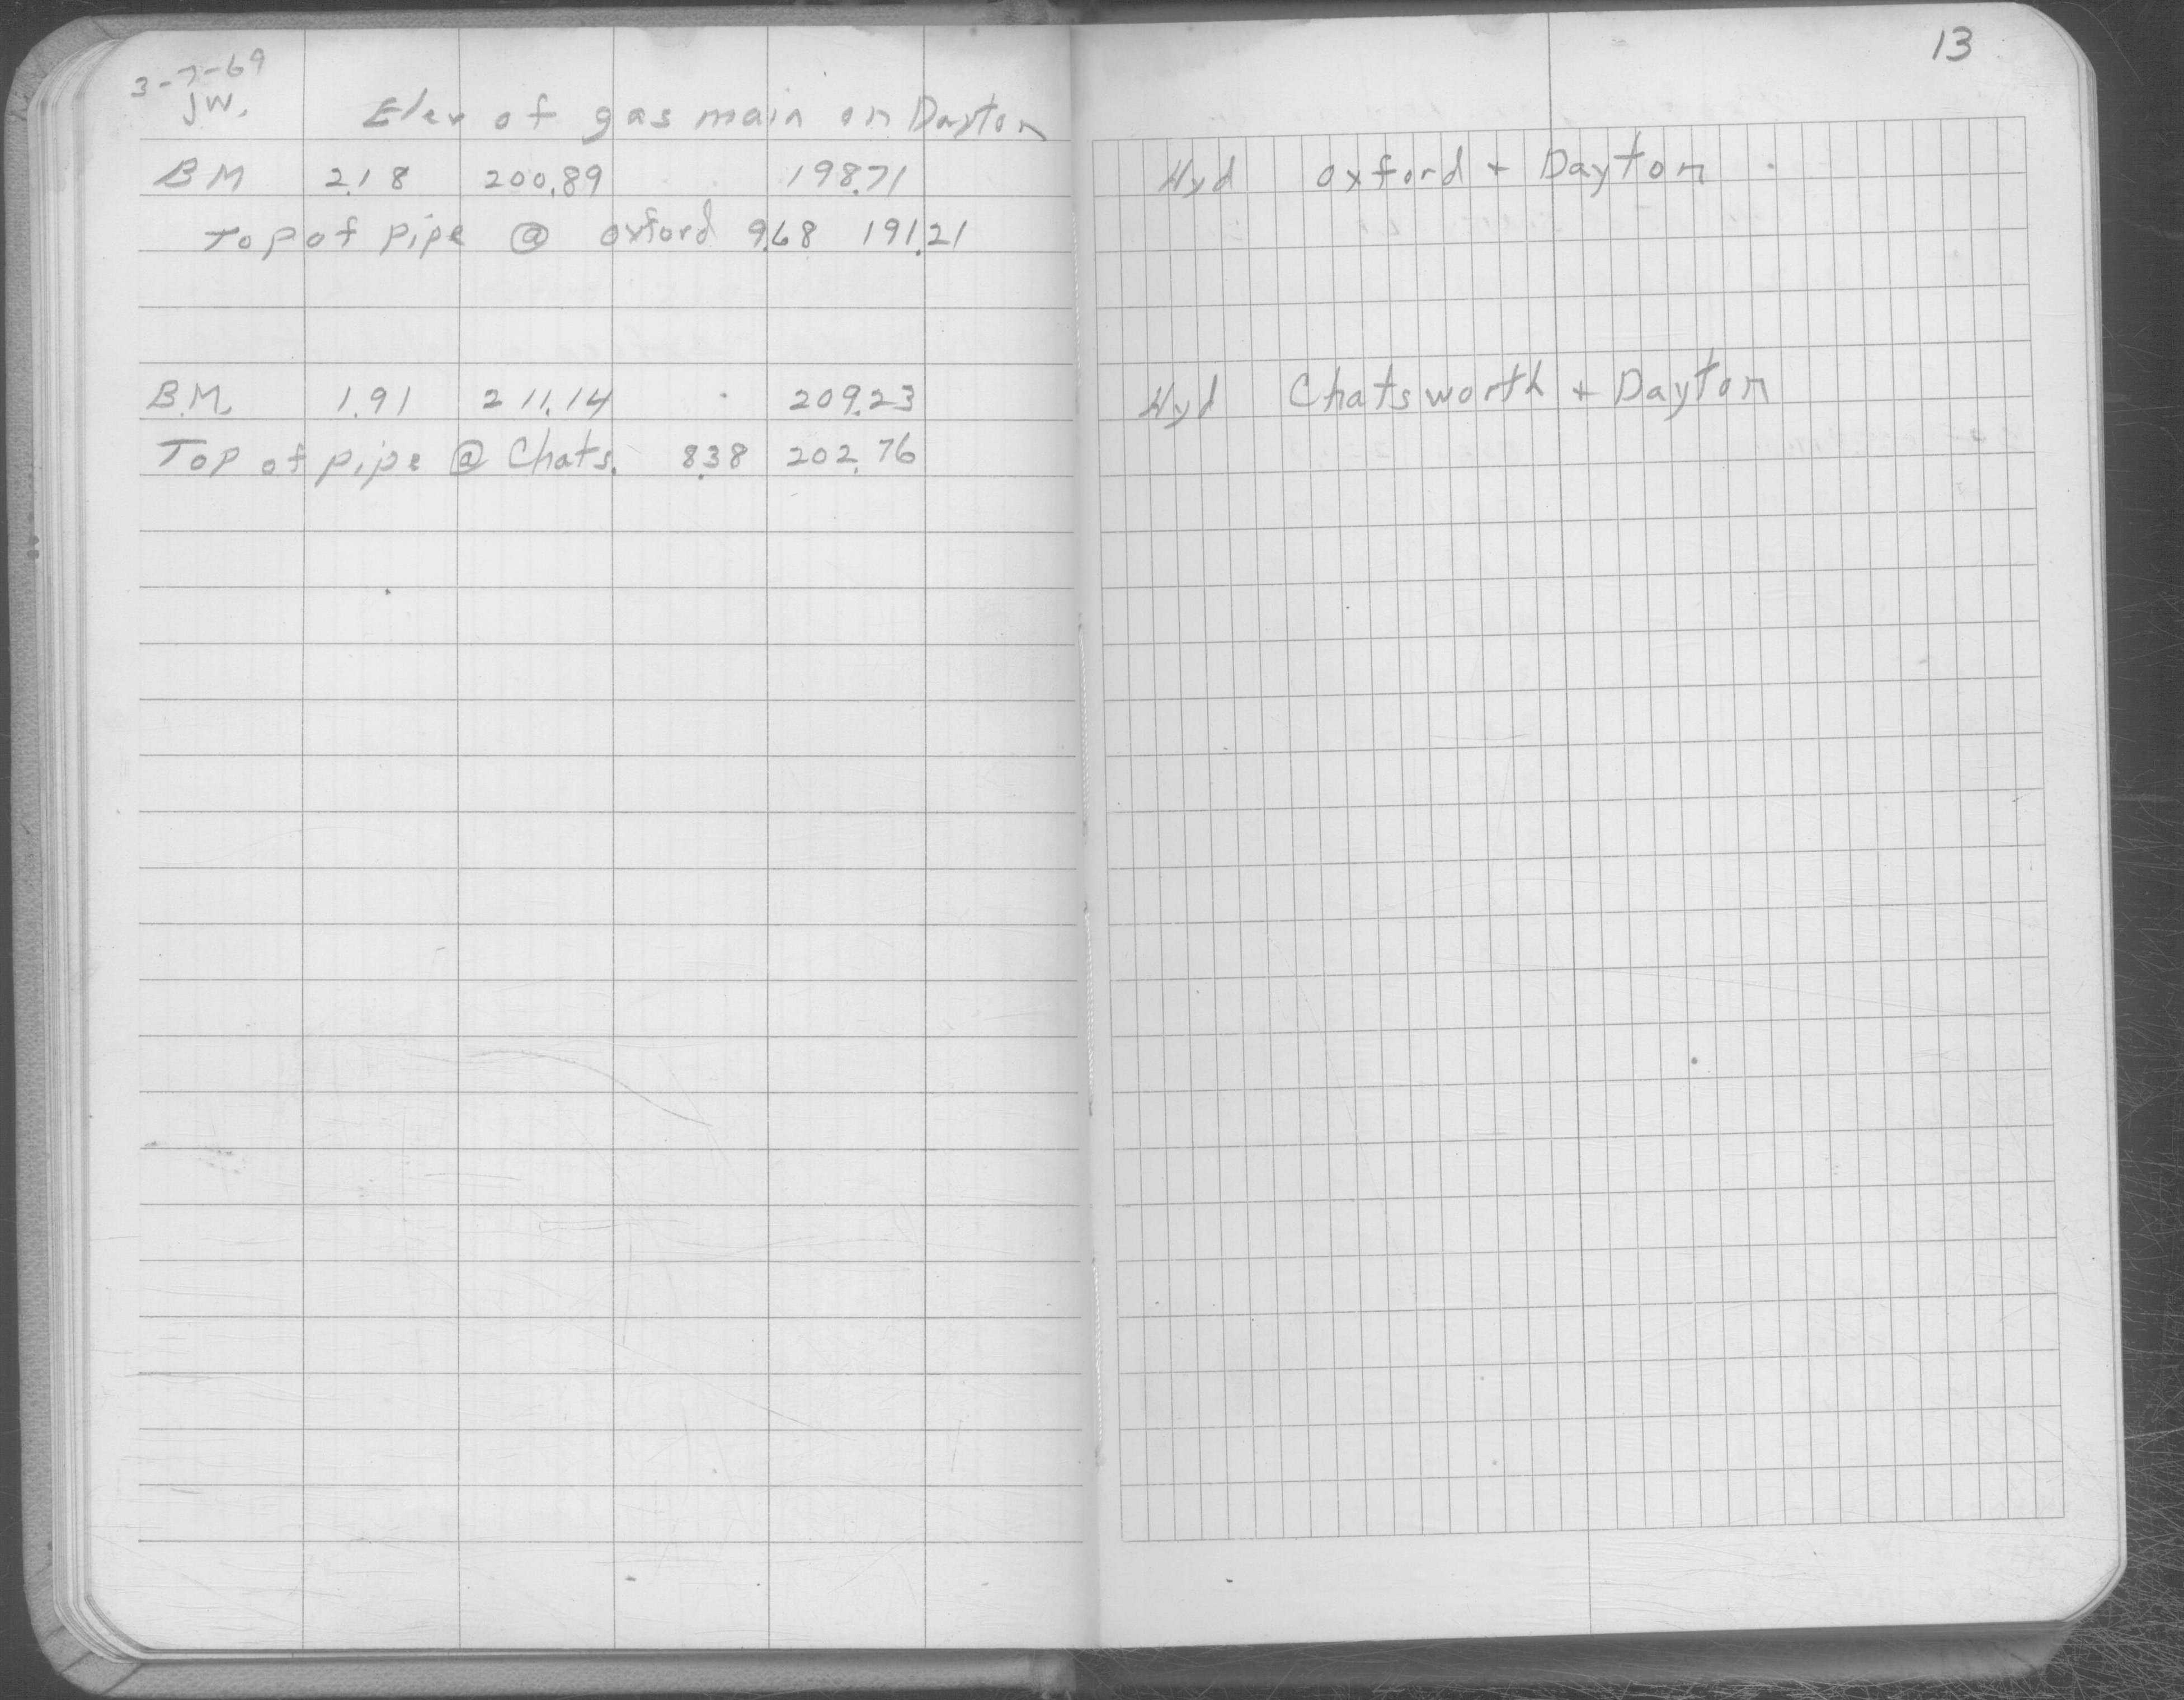 3-7-69
JW.
Elev of gas main on Dayton
BM 2.18 200.89 198.71
Top of pipe @ oxford 9.68 191.21
B.M. 1.91 211.14 209.23
Top of pipe @ Chats. 8.38 202.76
13
Hyd oxford + Dayton
Hyd Chatsworth + Dayton